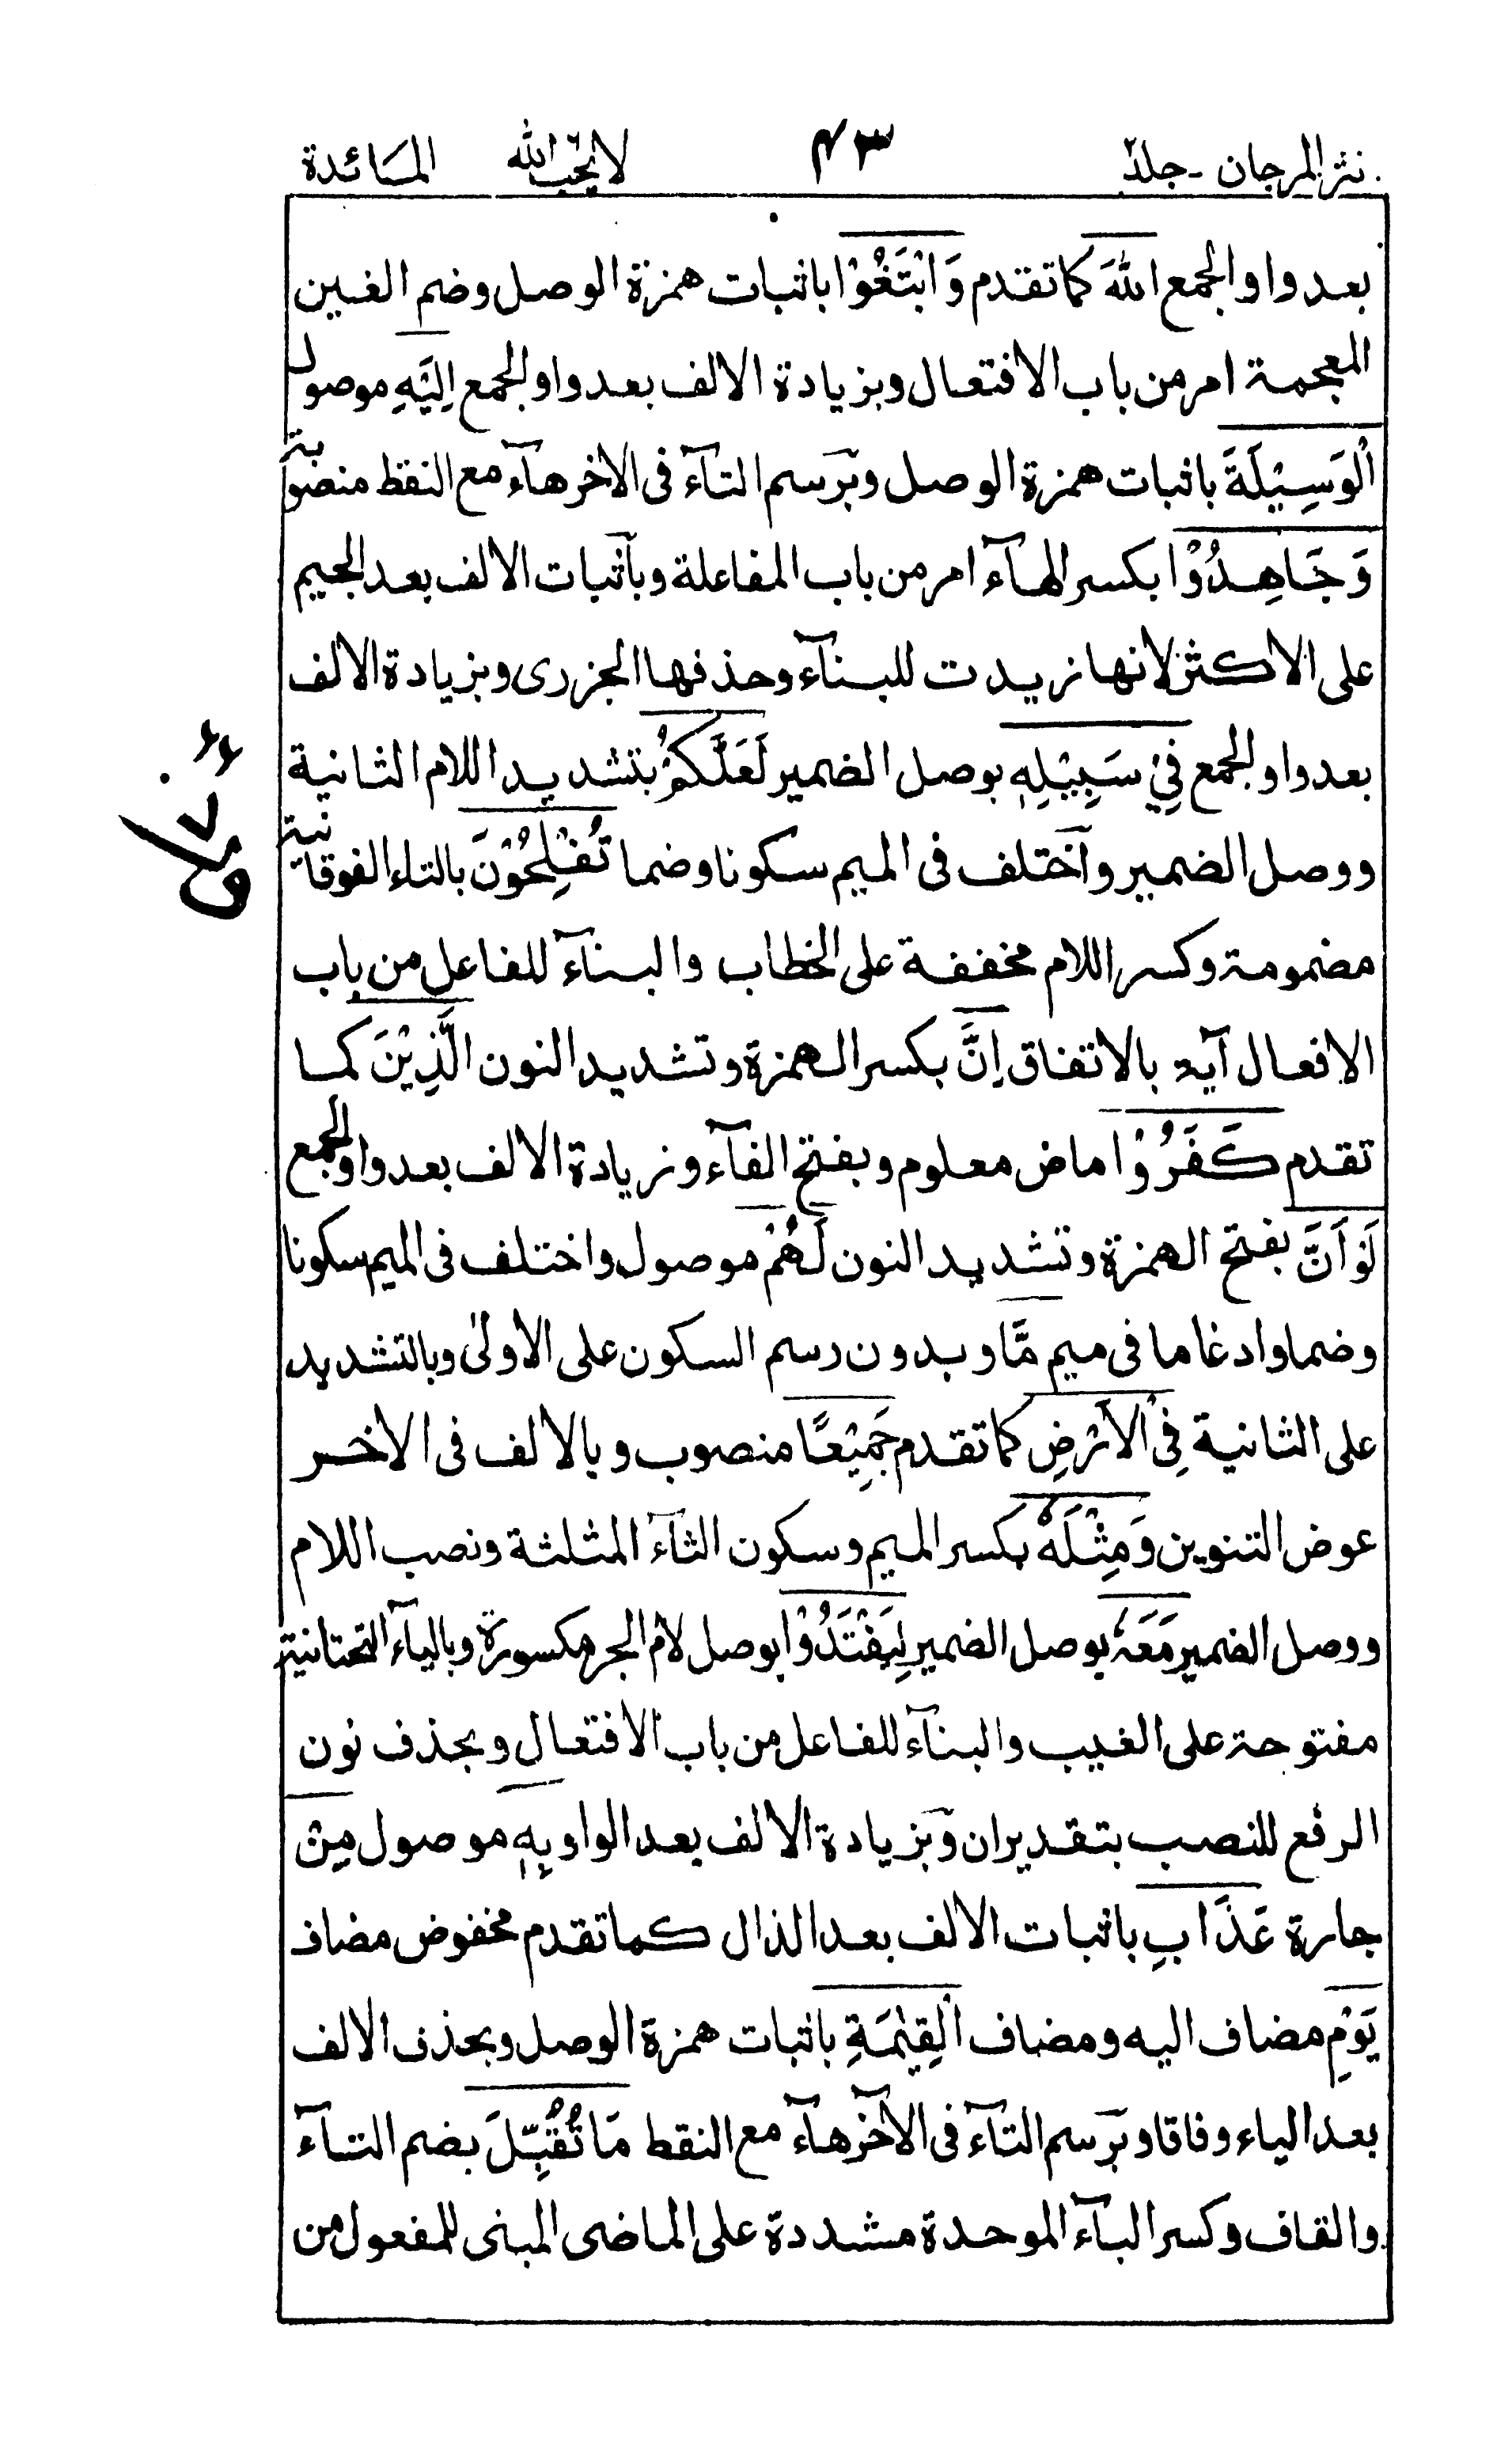 نثر المرجان - جلد٢ ٤٣ لا يحب الله المائدة
بعد واو الجمع اللهَ كما تقدم وَابْتَغُوْا باثبات همزة الوصل وضم الغين
المعجمة امر من باب الافتعال وبزيادة الالف بعد واو الجمع اِلَيْهِ موصول
اْلوَسِيْلَةَ باثبات همزة الوصل وبرسم التآء فى الاخر هآء مع النقط منصوبة
وَجَاهِدُوْا بكسر الهآء امر من باب المفاعلة وباثبات الالف بعد الجيم
على الاكثر لانها زيدت للبنآء وحذفها الجزرى وبزيادة الالف
بعد واو الجمع فِيْ سَبِيْلِهٖ بوصل الضمير لَعَلَّكُمْ بتشديد اللام الثانية
ووصل الضمير واختلف فى الميم سكونا وضما تُفْلِحُوْنَ بالتاء الفوقانية
مضمومة وكسر اللام مخففة على الخطاب والبنآء للفاعل من باب
الافعال آية بالاتفاق اِنَّ بكسر الهمزة وتشديد النون الَّذِيْنَ كما
تقدم كَفَرُوْا ماض معلوم وبفتح الفآء وزيادة الالف بعد واو الجمع
لَوْ اَنَّ بفتح الهمزة وتشديد النون لَهُمْ موصول واختلف فى الميم سكونا
وضما وادغاما فى ميم مَّا وبدون رسم السكون على الاولىٰ وبالتشديد
على الثانية فِى الْاَرْضِ كما تقدم جَمِيْعًا منصوب وبالالف فى الاخر
عوض التنوين وَمِثْلَهٗ بكسر الميم وسكون الثآء المثلثة ونصب اللام
ووصل الضمير مَعَهٗ بوصل الضمير لِيَفْتَدُوْا بوصل لام الجر مكسورة وبالياء التحتانية
مفتوحة على الغيب والبنآء للفاعل من باب الافتعال وبحذف نون
الرفع للنصب بتقدير ان وبزيادة الالف بعد الواو بِهٖ موصول مِنْ
جارة عَذَابِ باثبات الالف بعد الذال كما تقدم مخفوض مضاف
يَوْمِ مضاف اليه ومضاف الْقِيٰمَةِ باثبات همزة الوصل وبحذف الالف
بعد الياء وفاقا وبرسم التآء فى الآخر هآء مع النقط مَا تُقُبِّلَ بضم التآء
والقاف وكسر البآء الموحدة مشددة على الماضى المبنى للمفعول من